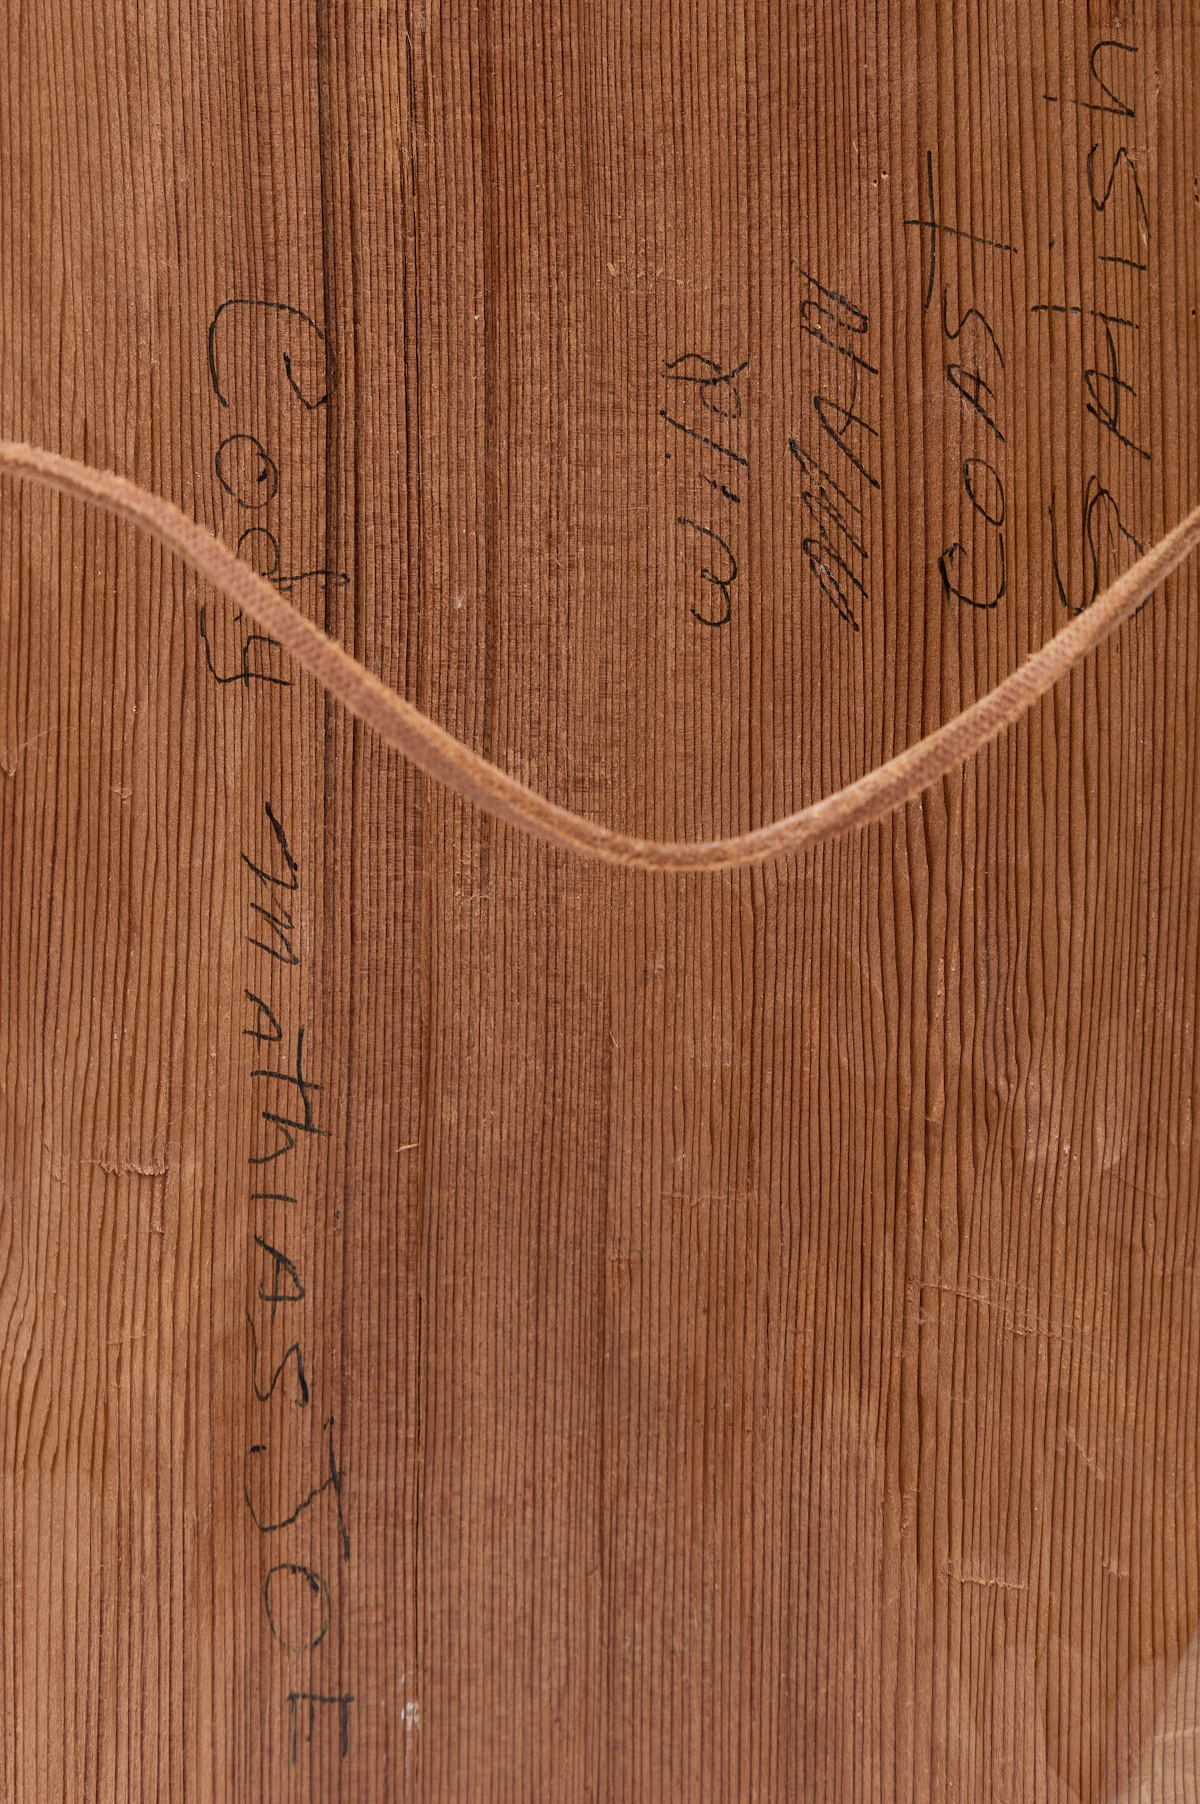 Cody MATHIAS JOE
wild
MAN
COAST
SALISh